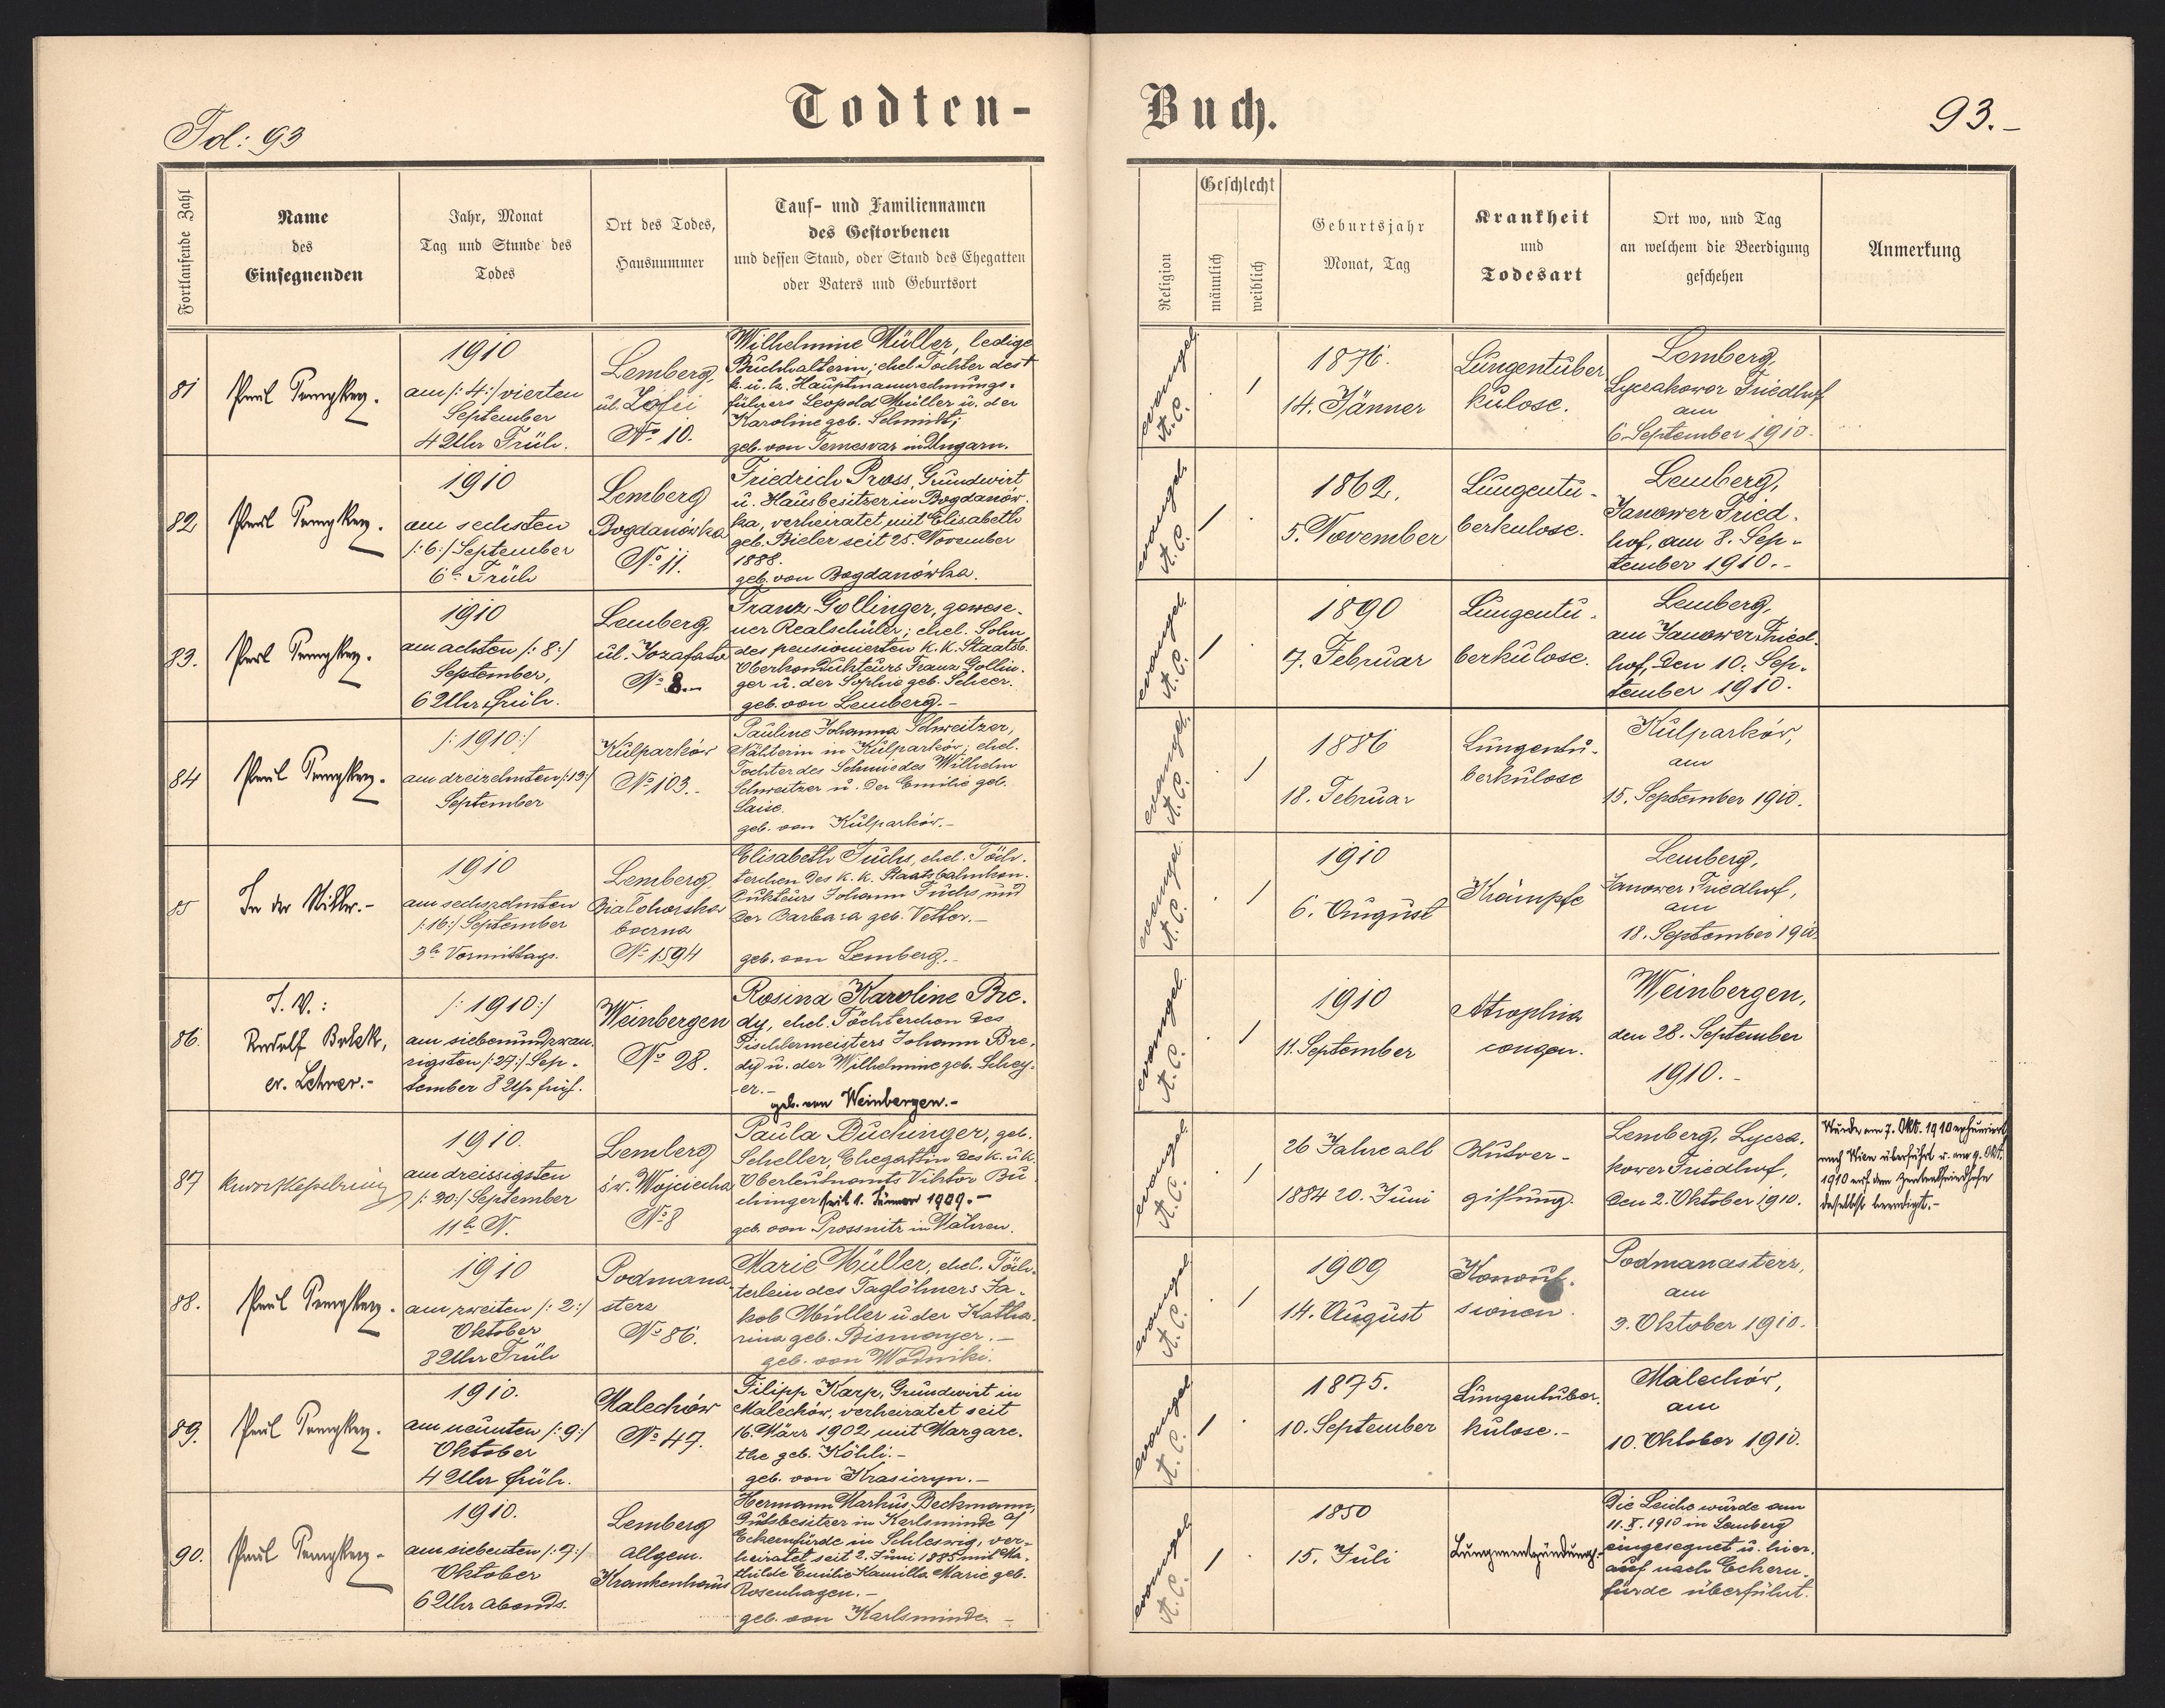 Todten-
Buch.
Fol: 93
93.-
Fortlaufende Zahl
Name
des
Einsegnenden
Jahr, Monat
Tag und Stunde des
Todes
Ort des Todes,
Hausnummer
Tauf- und Familiennamen
des Gestorbenen
und dessen Stand, oder Stand des Ehegatten
oder Vaters und Geburtsort
Religion
Geschlecht
männlich
weiblich
Geburtsjahr
Monat, Tag
Krankheit
und
Todesart
Ort wo, und Tag
an welchem die Beerdigung
geschehen
Anmerkung
81
Paul
1910
am /:4:/ vierten
September
4 Uhr Früh.
Lemberg,
ul. Zofii
No 10.
Wilhelmine Müller, ledige
Buchhalterin; ehel. Tochter des
k. u. k. Hauptmannrechnungs-
führers Leopold Müller u. der
Karoline geb. Schmidt;
geb. von Temesvar in Ungarn.
evangel.
A. C.
1
1876.
14. Jänner
Lungentuber
kulose.
Lemberg
Lyczakower Friedhof
am
6. September 1910.
82
Paul
1910
am sechsten
/:6:/ September
6h Früh
Lemberg
Bogdanówka
No 11.
Friedrich Pross, Grundwirt
u. Hausbesitzer in Bogdanów-
ka, verheiratet mit Elisabeth
geb. Bieler seit 25. November
1888.
geb. von Bogdanówka.
evangel.
A. C.
1
1862.
5. November
Lungentu-
berkulose.
Lemberg,
Janower Fried-
hof, am 8. Sep-
tember 1910.-
83.
Paul
1910
am achten /:8:/
September,
6 Uhr früh.
Lemberg
ul. Jozafata
No 8.-
Franz Gollinger, gewese-
ner Realschüler; ehel. Sohn
des pensionierten k. k. Staatsb.
Oberkondukteurs Franz Gollin-
ger u. der Sophie geb. Scheer.
geb. von Lemberg.-
evangel.
A. C.
1
1890
7. Februar
Lungentu-
berkulose.
Lemberg,
am Janower Fried-
hof, den 10. Sep-
tember 1910.
84
Paul
/:1910:/
am dreizehnten /:13:/
September
Kulparków
No 103.-
Pauline Johanna Schweitzer,
Nähterin in Kulparków; ehel.
Tochter des Schmiedes Wilhelm
Schweitzer u. der Emilie geb.
Laise.
geb. von Kulparków.-
evangel.
A. C.
1
1886
18. Februar
Lungentu-
berkulose
Kulparków,
am
15. September 1910.
85
In der Stille.-
1910
am sechszehnten
/:16:/ September
3h Vormittags.
Lemberg
Bialohorska
boczna
No 1594
Elisabeth Fuchs, ehel. Töch-
terchen des k. k. Staatsbahnkon-
dukteurs Johann Fuchs und
der Barbara geb. Vetter.-
geb. von Lemberg.-
evangel.
A. C.
1
1910
6. August
Krämpfe
Lemberg,
Janower Friedhof,
am
18. September 1910.
86.
I. V.:
Rudolf Bolek,
ev. Lehrer.-
/:1910:/
am siebenundzwan-
zigsten /:27:/ Sep-
tember 8 Uhr früh.
Weinbergen
No 28.
Rosina Karoline Bre-
dy, ehel. Töchterchen des
Tischlermeisters Johann Bre-
dy u. der Wilhelmine geb. Schey-
er.-
geb. von Weinbergen.-
evangel.
A. C.
1
1910
11. September
Atrophia
congen.
Weinbergen,
den 28. September
1910.-
87
1910.
am dreissigsten
/:30:/ September
11h N.
Lemberg
św. Wojciecha
No 8
Paula Buchinger, geb.
Scheller, Ehegattin des k. u. k.
Oberleutnants Viktor Bu-
chinger seit 1. Jänner 1909.-
geb. von Prossnitz in Mähren.
evangel.
A. C.
1
26 Jahre alt
1884 20. Juni
Blutver-
giftung.
Lemberg, Lycza-
kower Friedhof,
den 2. Oktober 1910.
Wurde am 7. Okt. 1910 exhumiert
nach Wien überführt u. am 9. Okt.
1910 auf dem Zentralfriedhofe
daselbst beerdigt.-
88.
Paul
1910
am zweiten /:2:/
Oktober
8 Uhr Früh
Podmana-
sterz
No 86.
Marie Müller, ehel. Töch-
terlein des Taglöhners Ja-
kob Müller u. der Katha-
rina geb. Bismanger.-
geb. von Wodniki.
evangel.
A. C.
1
1909
14. August
Konvul-
sionen.
Podmanasterz,
am
3. Oktober 1910.
89.
Paul
1910.
am neunten /:9:/
Oktober
4 Uhr früh.
Malechów
No 47.
Filipp Karp, Grundwirt in
Malechów, verheiratet seit
16. März 1902 mit Margare-
the geb. Köhli.-
geb. von Krasiczyn.-
evangel.
A. C.
1
1875.
10. September
Lungentuber-
kulose.-
Malechów,
am
10. Oktober 1910.
90.
Paul
1910.
am siebenten /:7:/
Oktober
6 Uhr abends.
Lemberg
allgem.
Krankenhaus
Hermann Markus Beckmann,
Gutsbesitzer in Karlsminde a/
Eckernfürde in Schleswig, ver-
heiratet seit 2. Juni 1885 mit Ma-
thilde Emilie Kamilla Marie geb.
Rosenhagen.-
geb. von Karlsminde.-
evangel.
A. C.
1
1850
15. Juli
Lungenentzündung.-
Die Leiche wurde am
11. X. 1910 in Lemberg
eingesegnet u. hier-
auf nach Eckern-
fürde überführt.